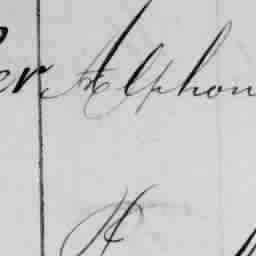 er Alphon
H